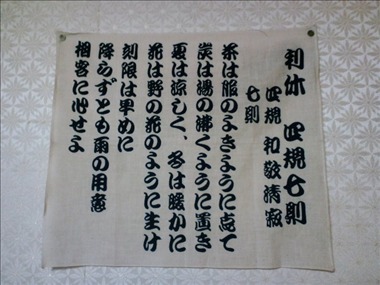 利休 四規七則
四規 和敬清寂
七則
茶は服のよきように点て
炭は湯の沸くように置き
夏は涼しく、冬は暖かに
花は野の花のように生け
刻限は早めに
降らずとも雨の用意
相客に心せよ